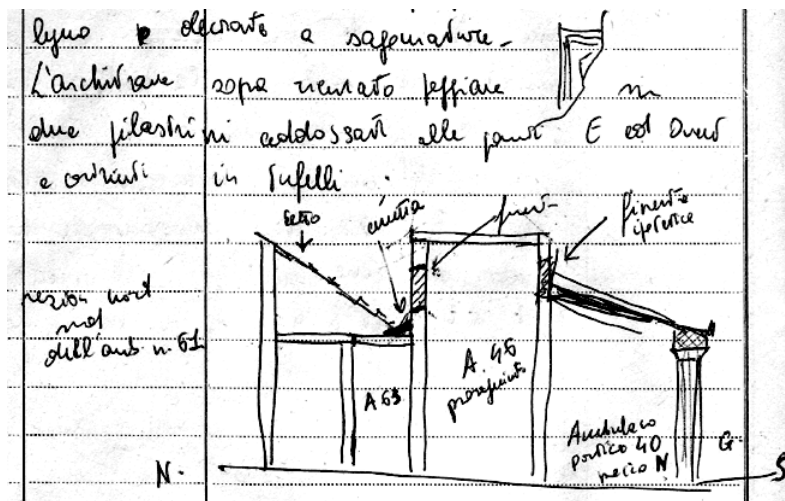 legno e decorato a sagomature.
L'architrave sopra meniato poggiare su
due pilastrini addossati alle pareti E ed Ovest
e costruiti in tufelli.
tetto
cunetta
finestra
ipotetica
sezione nord
sud
dell'amb. n. 61
A 63
A. 46
proseguimento
Ambulacro
portico 40
G.
N.
S